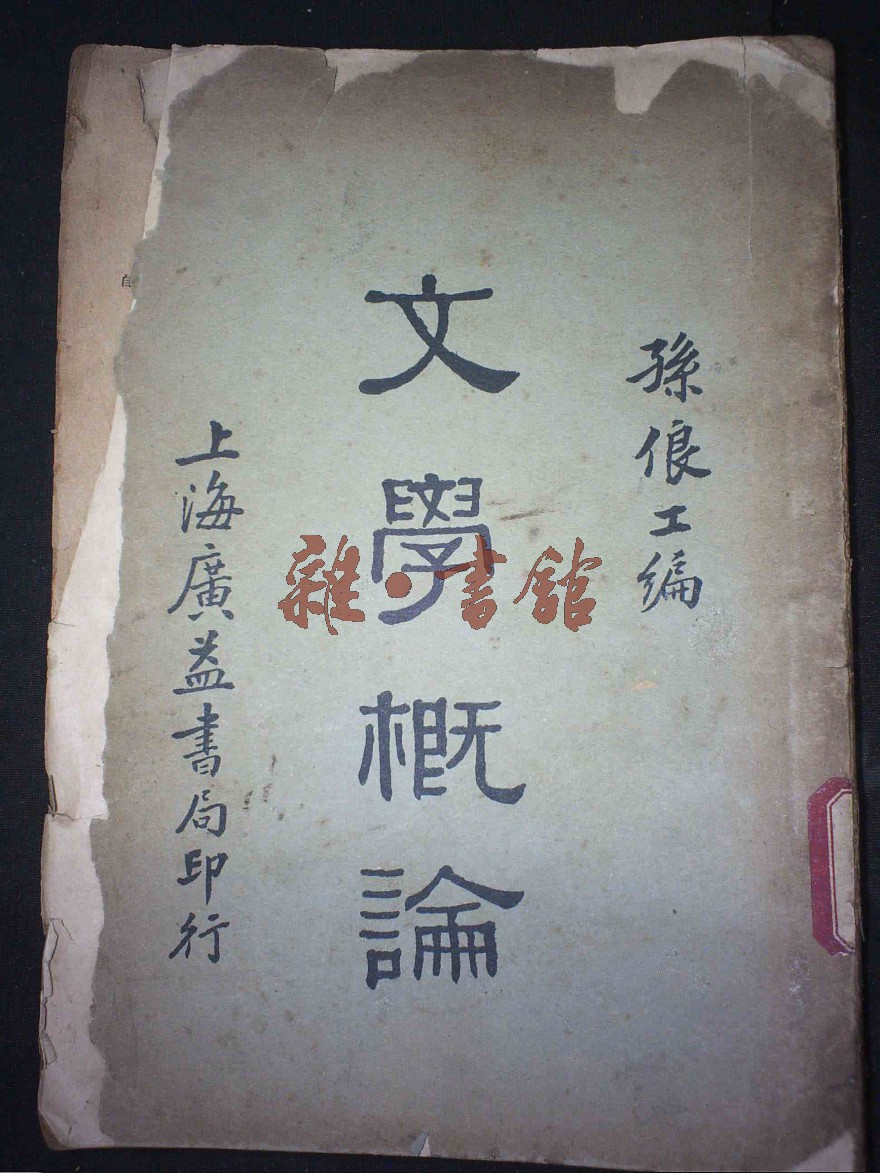 孫俍工编
文學概論
上海廣益書局印行
雜·書館
自